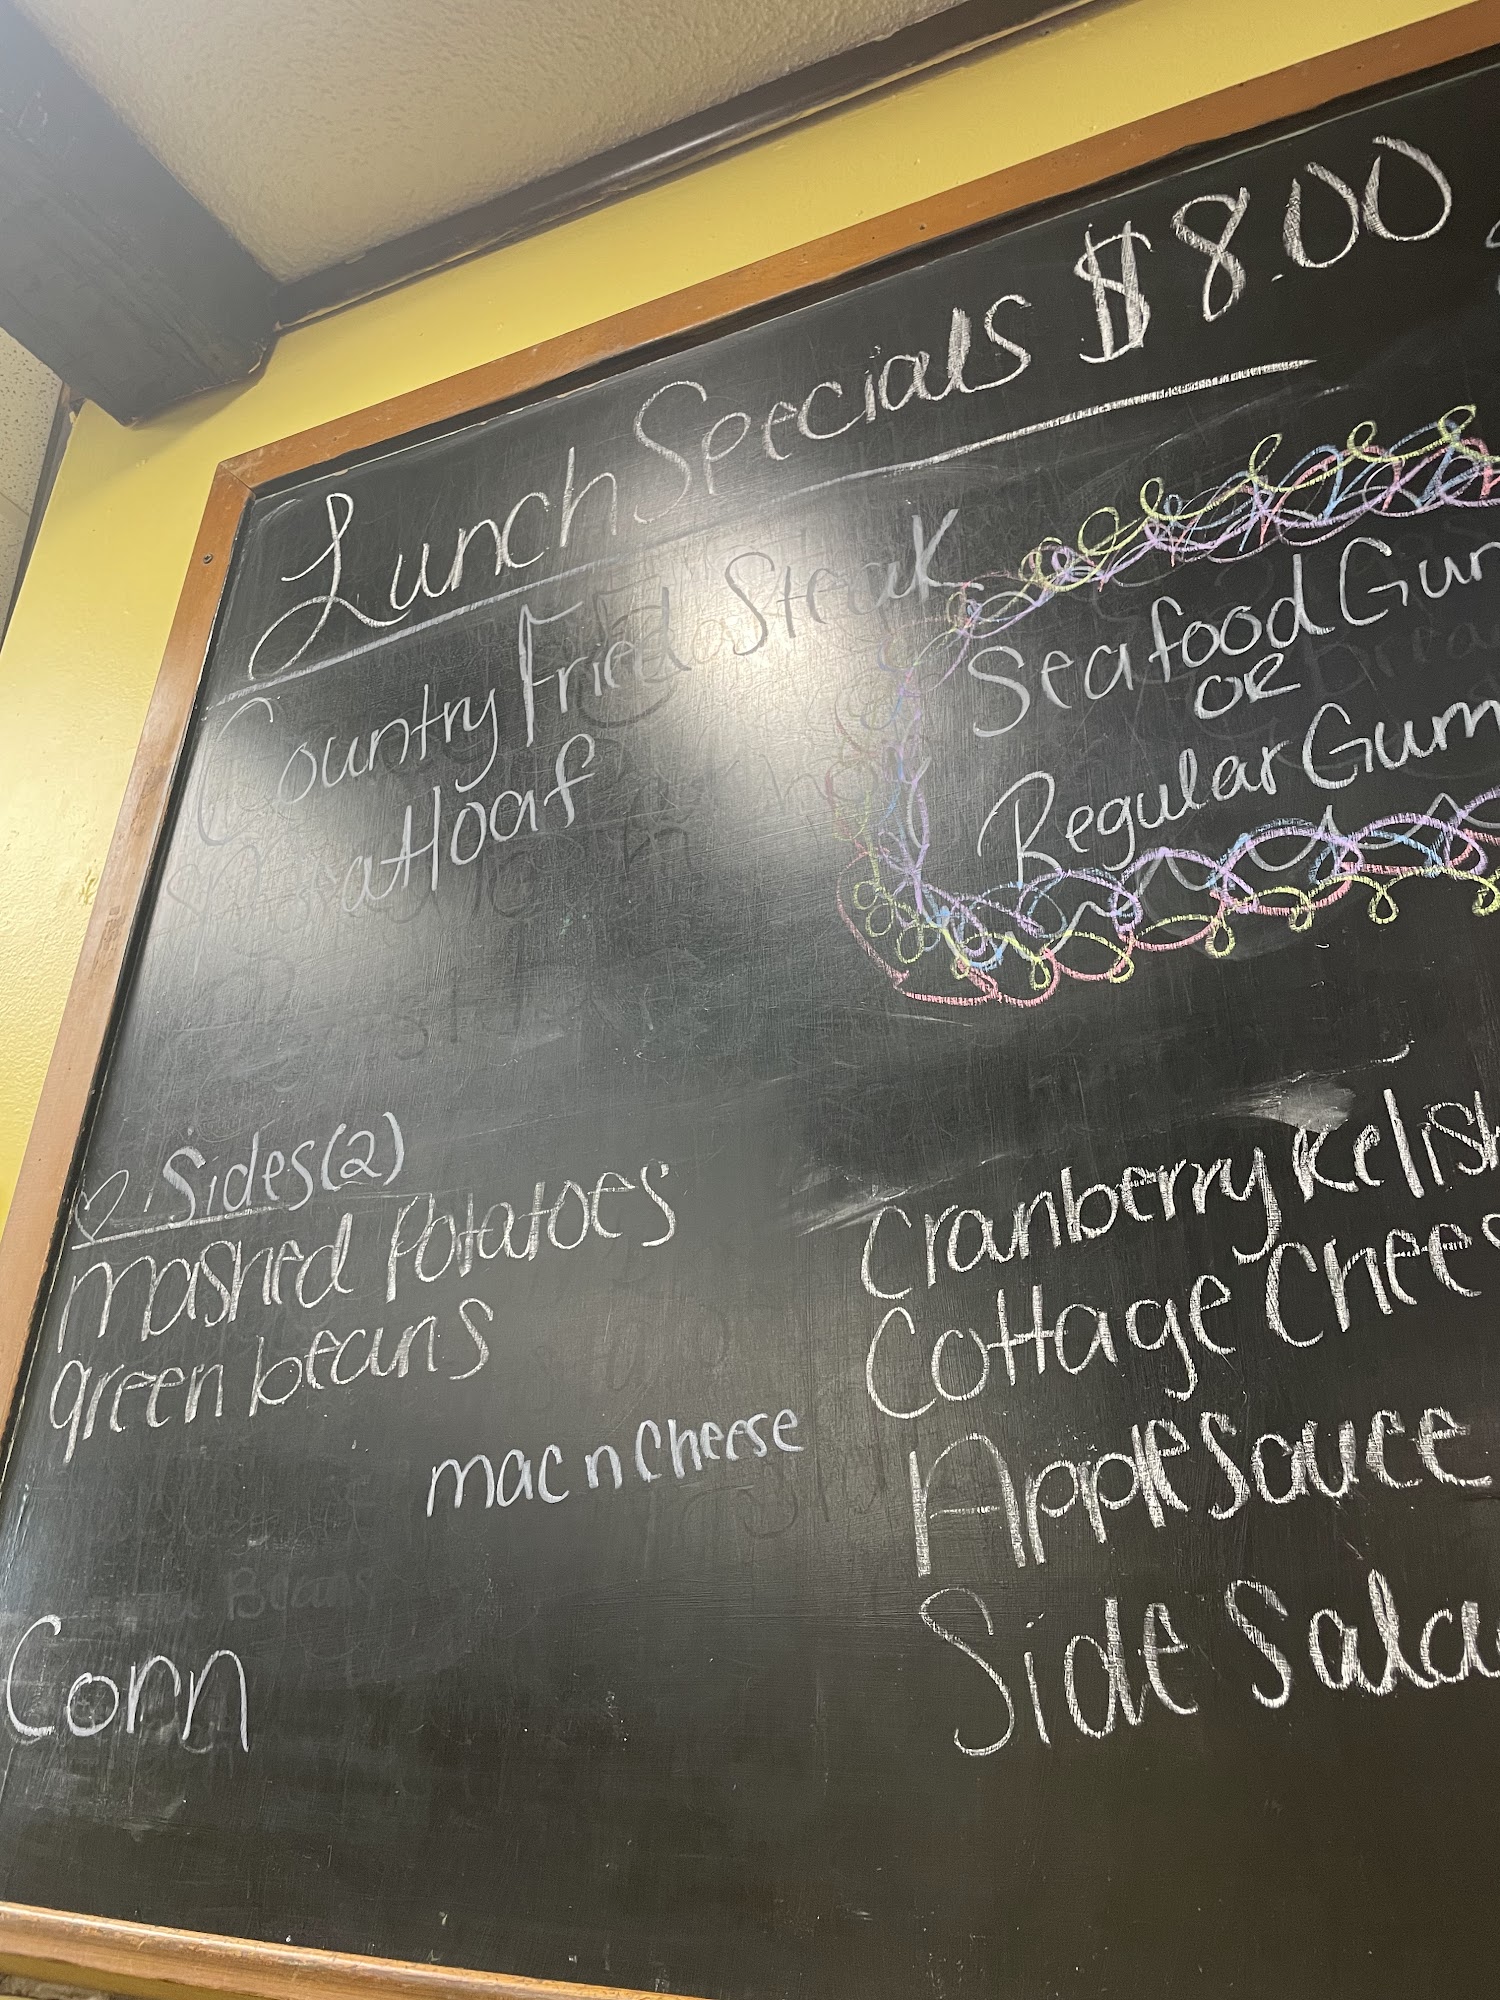 Lunch Specials $8.00
Country Fried Steak
Seafood Gum
OR
Regular Gum
♡ Sides(2)
mashed Potatoes
green beans
mac n Cheese
Corn
Cranberry Relish
Cottage Chees
Applesauce
Side Sala